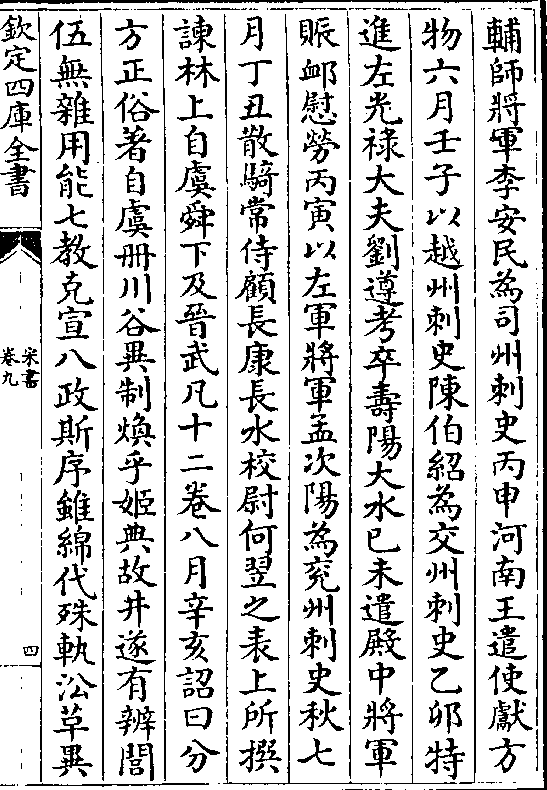 輔師將軍李安民為司州刺史丙申河南王遣使獻方
物六月壬子以越州刺史陳伯紹為交州刺史乙卯特
進左光禄大夫劉遵考卒壽陽大水已未遣殿中將軍
賑䘏慰勞丙寅以左軍將軍孟次陽為兖州刺史秋七
月丁丑散騎常侍顧長康長水校尉何翌之表上所撰
諫林上自虞舜下及晉武凡十二卷八月辛亥詔曰分
方正俗著自虞冊川谷異制煥乎姬典故井遂有辨閭
伍無雜用能七教克宣八政斯序雖綿代殊軌㳂革異
欽定四庫全書
宋書
卷九
四